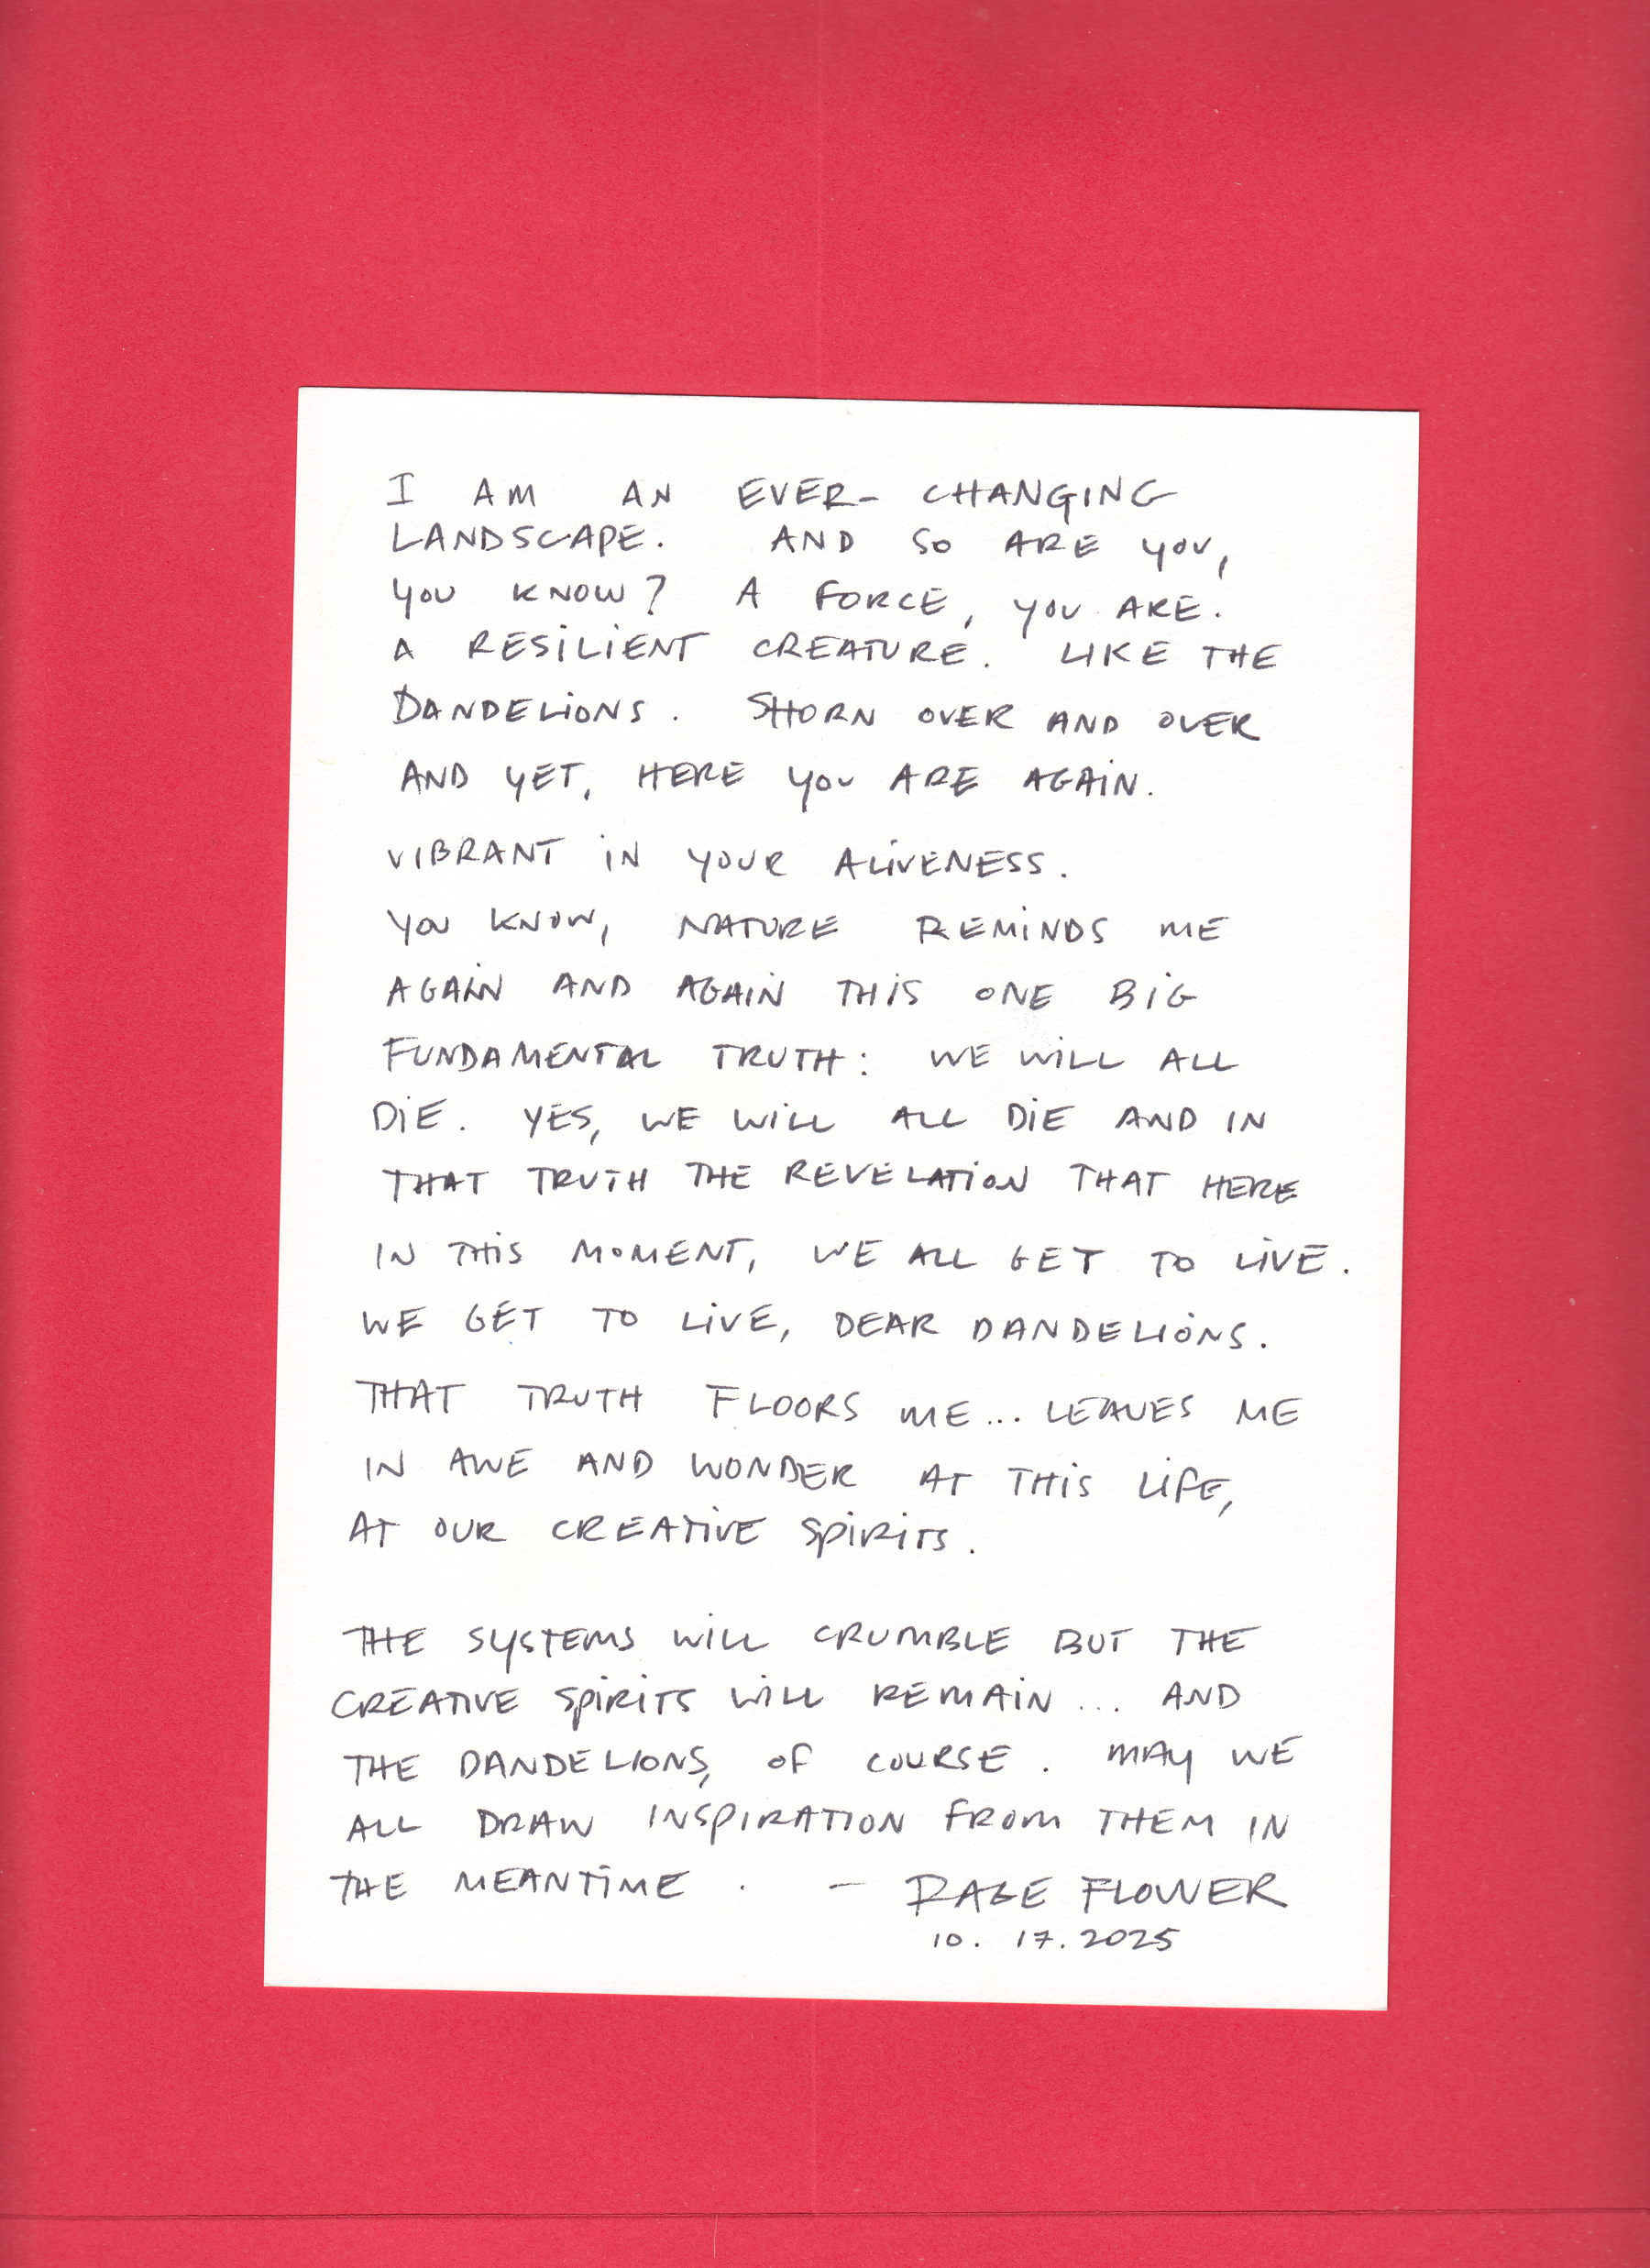 I AM AN EVER- CHANGING
LANDSCAPE. AND SO ARE YOU,
YOU KNOW? A FORCE, YOU ARE.
A RESILIENT CREATURE. LIKE THE
DANDELIONS. SHORN OVER AND OVER
AND YET, HERE YOU ARE AGAIN.
VIBRANT IN YOUR ALIVENESS.
YOU KNOW, NATURE REMINDS ME
AGAIN AND AGAIN THIS ONE BIG
FUNDAMENTAL TRUTH: WE WILL ALL
DIE. YES, WE WILL ALL DIE AND IN
THAT TRUTH THE REVELATION THAT HERE
IN THIS MOMENT, WE ALL GET TO LIVE.
WE GET TO LIVE, DEAR DANDELIONS.
THAT TRUTH FLOORS ME... LEAVES ME
IN AWE AND WONDER AT THIS LIFE,
AT OUR CREATIVE SPIRITS.
THE SYSTEMS WILL CRUMBLE BUT THE
CREATIVE SPIRITS WILL REMAIN... AND
THE DANDELIONS, OF COURSE. MAY WE
ALL DRAW INSPIRATION FROM THEM IN
THE MEANTIME. - RAGE FLOWER
10. 17. 2025